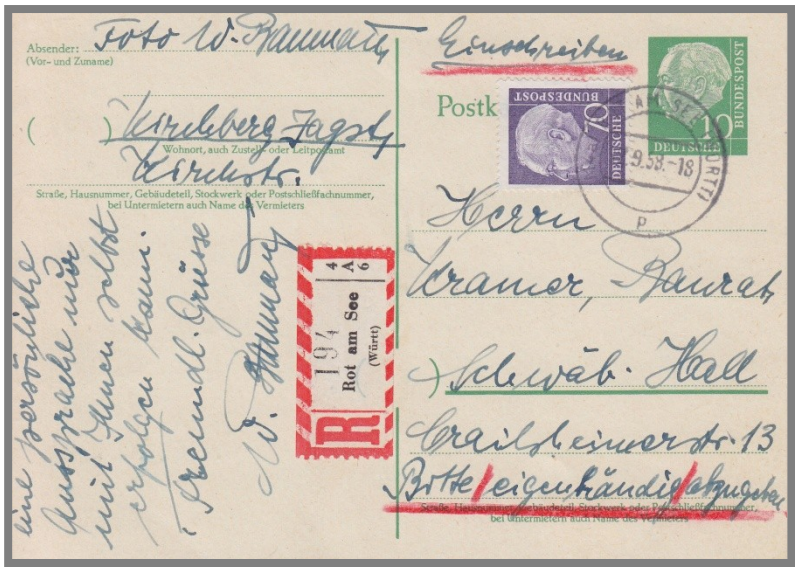 Absender: Foto W. Baumann
(Vor- und Zuname)
( ) Kirchberg Jagst,
Wohnort, auch Zustell- oder Leitpostamt
Kirchstr.
Straße, Hausnummer, Gebäudeteil, Stockwerk oder Postschließfachnummer,
bei Untermietern auch Name des Vermieters
eine persönliche
Aussprache nur
mit Ihnen selbst
erfolgen kann.
Freundl. Grüsse
W. Baumann
R
194
Rot am See
(Württ)
4 A 6
Einschreiben
Postk
70
DEUTSCHE
BUNDESPOST
10
DEUTSCHE
BUNDESPOST
AM SEE (WÜRTT)
9.58.-18
p
Herrn
Kramer, Baurat
) Schwäb. Hall
Crailsheimerstr. 13
Bitte/eigenhändig/abzugeben
Straße, Hausnummer, Gebäudeteil, Stockwerk oder Postschließfachnummer,
bei Untermietern auch Name des Vermieters